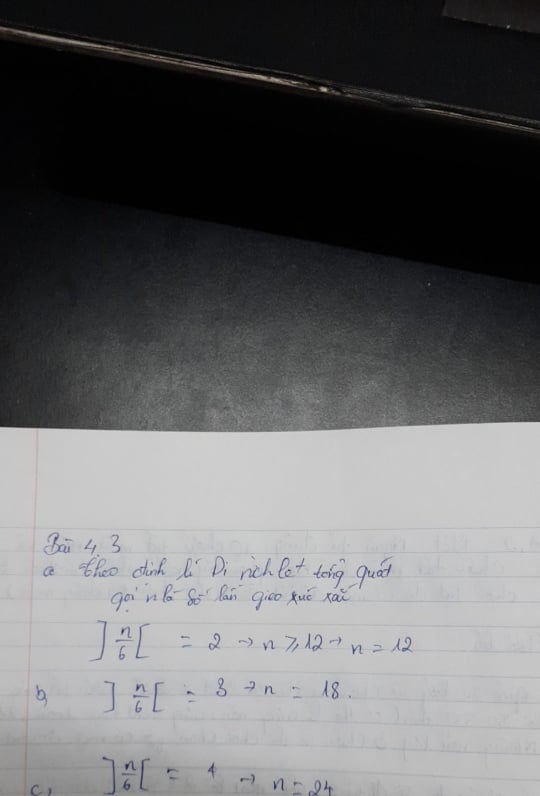 Bài 4.3
a theo định lí Di rich let tổng quát
gọi n là số lần gieo xúc xắc
]n/6[ = 2 → n ⩾ 12 → n = 12
b, ]n/6[ = 3 → n = 18.
c, ]n/6[ = 4 → n = 24